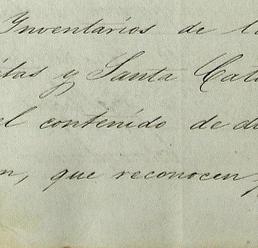 Inventarios de l
itas y Santa Cata
el contenido de d
n, que reconocen